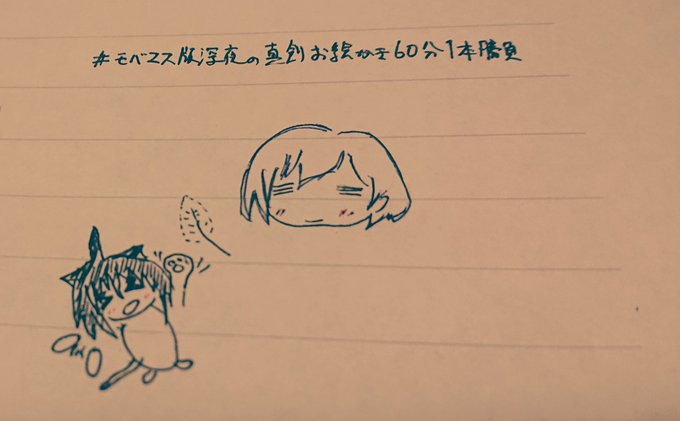 #モバマス版深夜の真剣お絵かき60分1本勝負